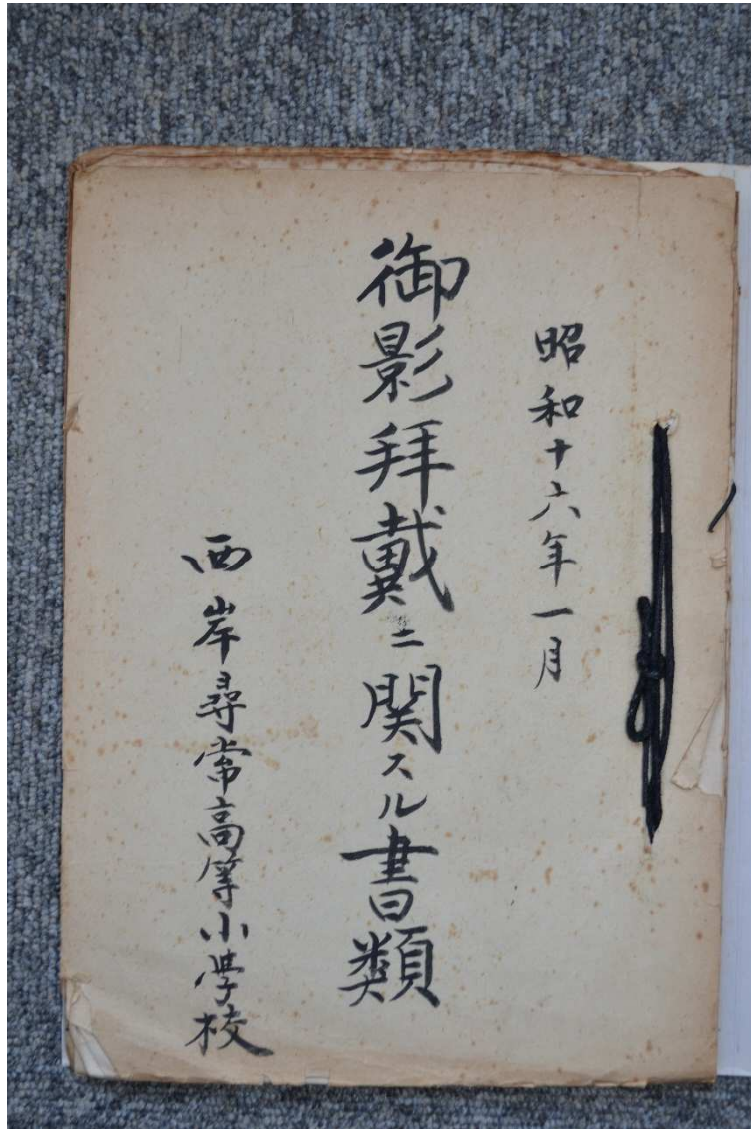 昭和十六年一月
御影拝戴ニ関スル書類
西岸尋常高等小学校